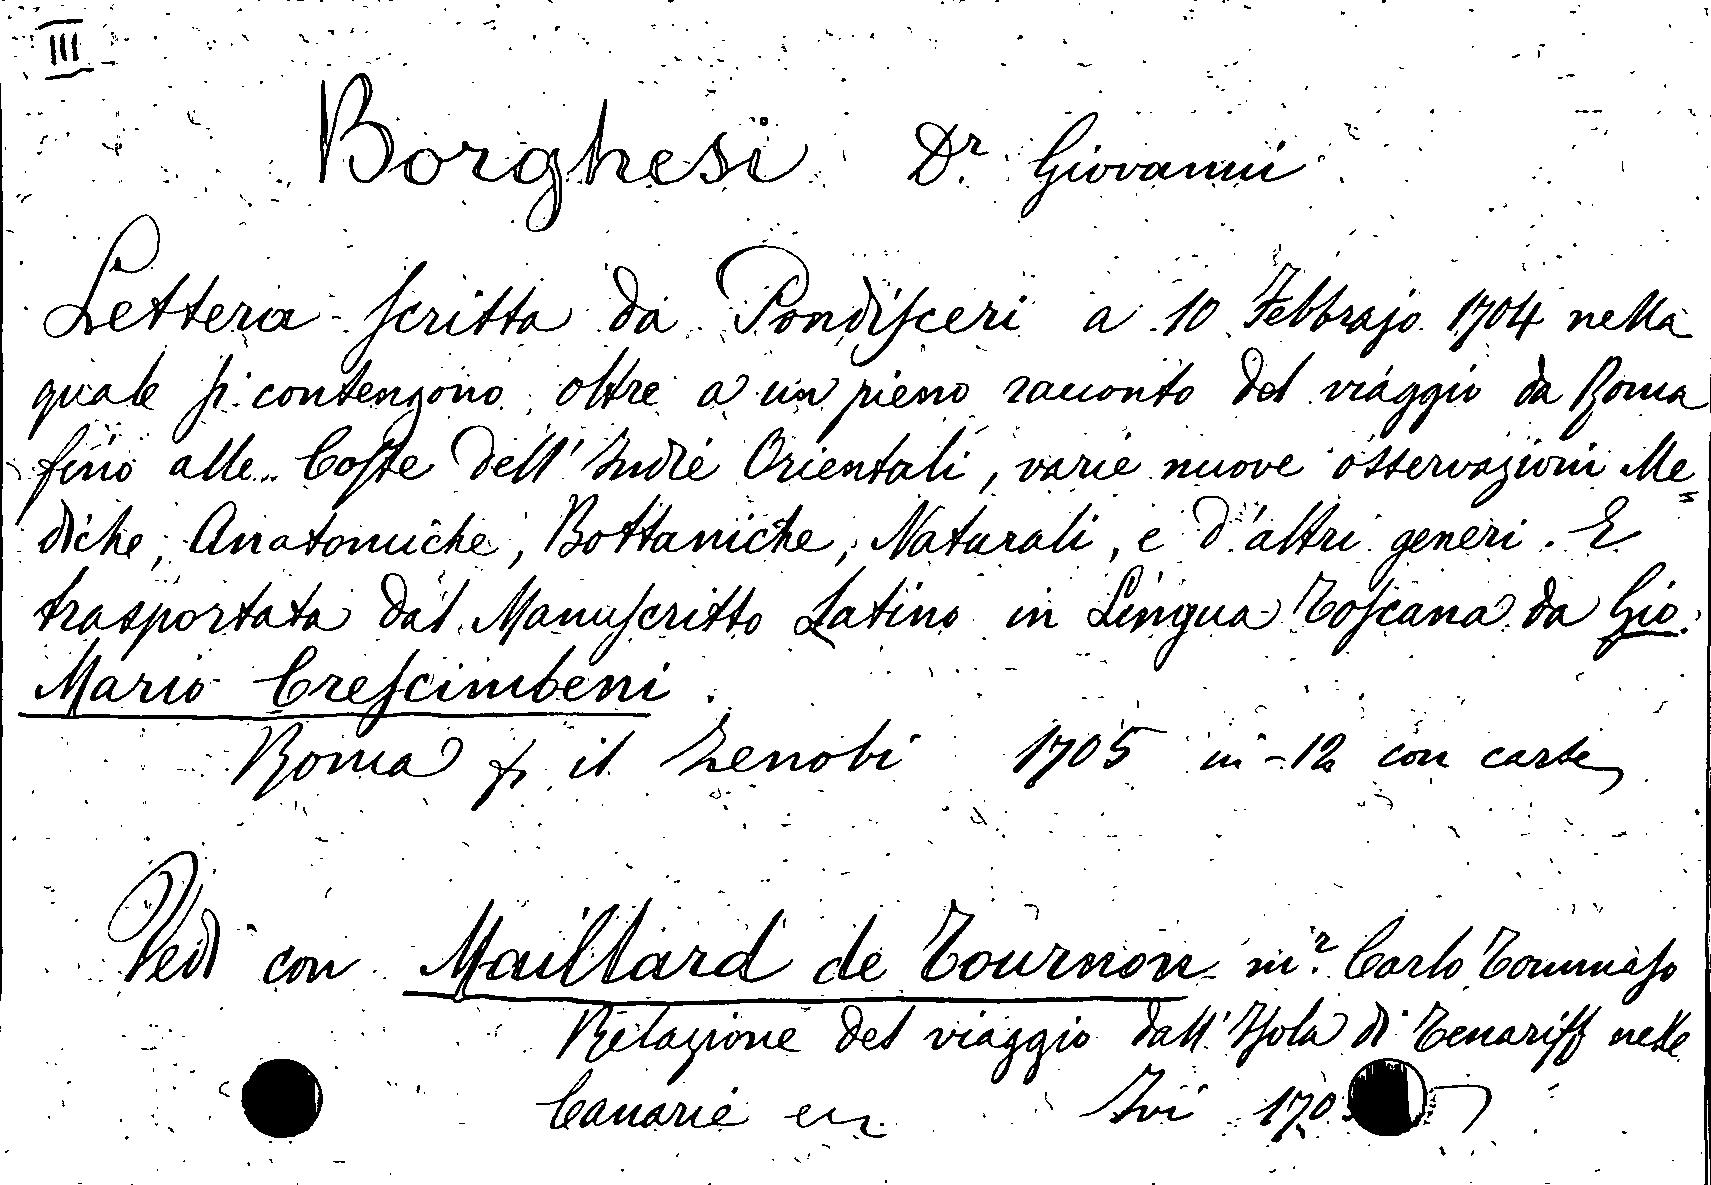 III
Borghesi Dr. Giovanni
Lettera scritta da Pondisceri a 10 Febbrajo 1704 nella
quale si contengono oltre a un pieno racconto del viaggio da Roma
fino alle Coste dell' Indie Orientali, varie nuove osservazioni Me=
diche, Anatomiche, Bottaniche, Naturali, e d'altri generi. E
trasportata dal Manuscritto Latino in Lingua Toscana da Gio.
Mario Crescimbeni.
Roma p. il Zenobi 1705 in-12 con carte
Vedi con Maillard de Tournon mr. Carlo Tommaso
Relazione del viaggio dall' Isola di Tenariff nelle
Canarie Ivi